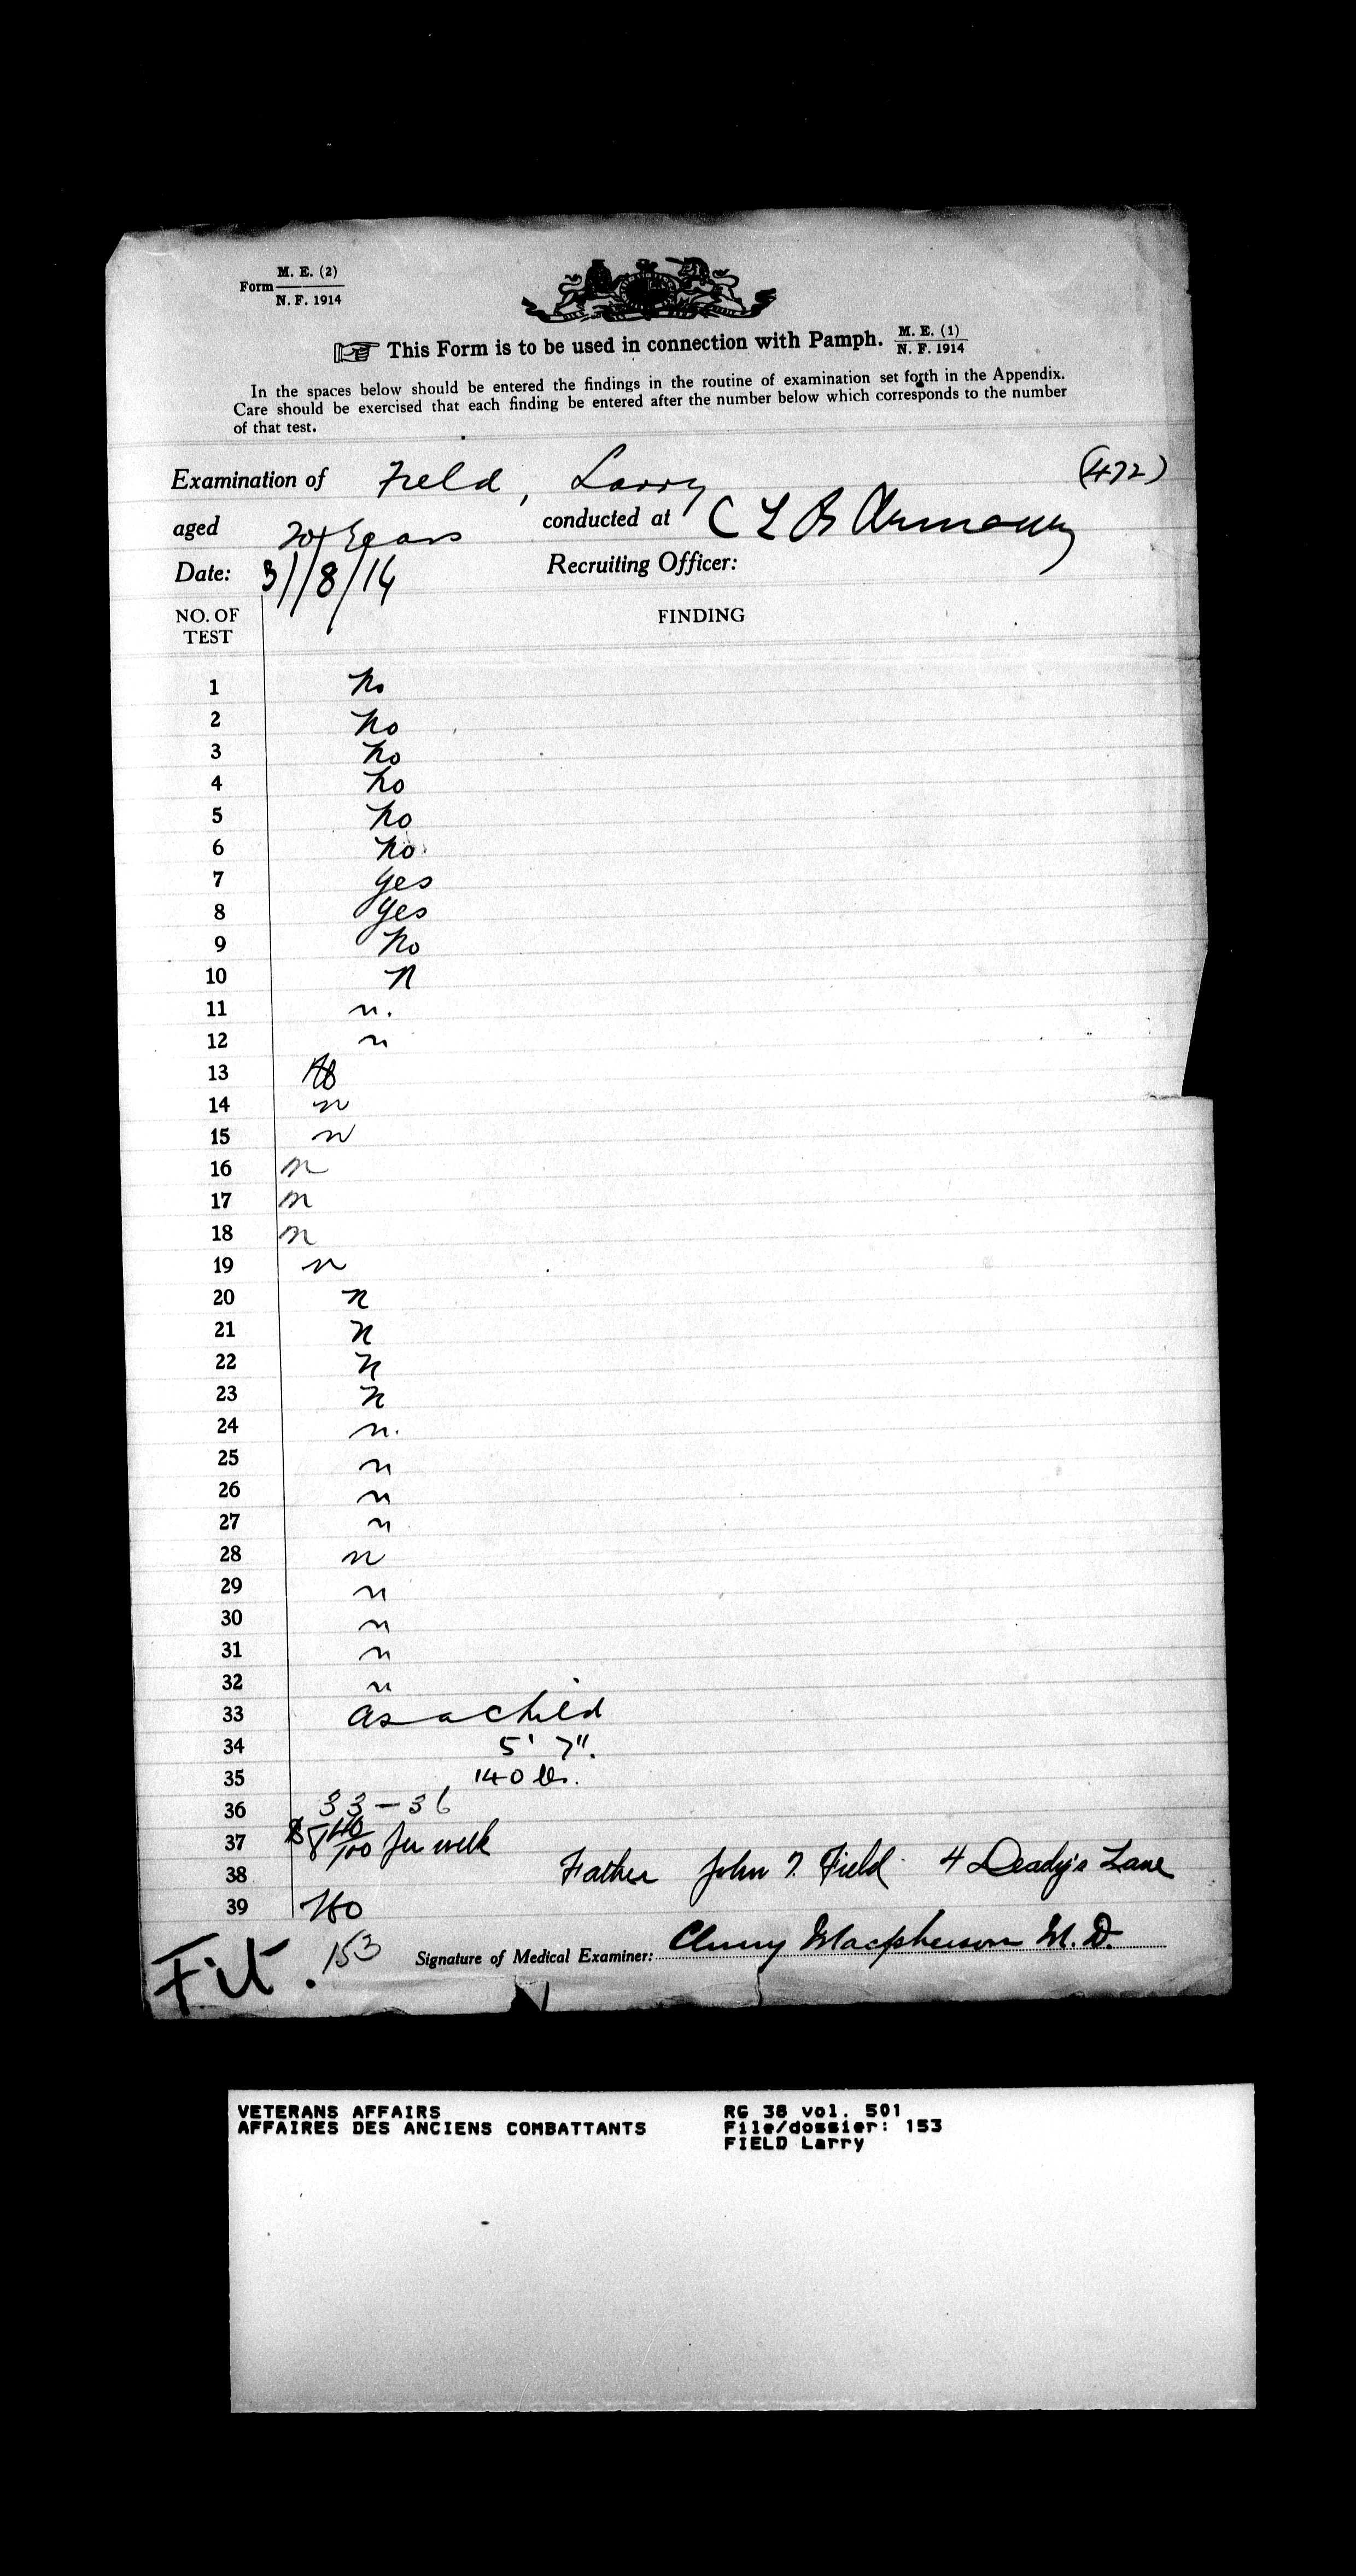 Form M. E. (2)
N. F. 1914
This Form is to be used in connection with Pamph. M. E. (1)
N. F. 1914
In the spaces below should be entered the findings in the routine of examination set forth in the Appendix.
Care should be exercised that each finding be entered after the number below which corresponds to the number
of that test.
Examination of Field, Larry (472)
aged years conducted at C L B Armoury
Date: 31/8/14 Recruiting Officer:
NO. OF TEST FINDING
1 No
2 No
3 No
4 No
5 No
6 No
7 yes
8 yes
9 No
10 N
11 n.
12 n
13
14 n
15 n
16 n
17 n
18 n
19 n
20 n
21 n
22 n
23 n
24 n.
25 n
26 n
27 n
28 n
29 n
30 n
31 n
32 n
33 as a child
34 5' 7".
35 140 lbs.
36 33 - 36
37 $8 40/100 per week
38 Father John T. Field 4 Deady's Lane
39 No
Fit. 153 Signature of Medical Examiner: Cluny Macpherson M. D.
VETERANS AFFAIRS RG 38 vol. 501
AFFAIRES DES ANCIENS COMBATTANTS File/dossier: 153
FIELD Larry